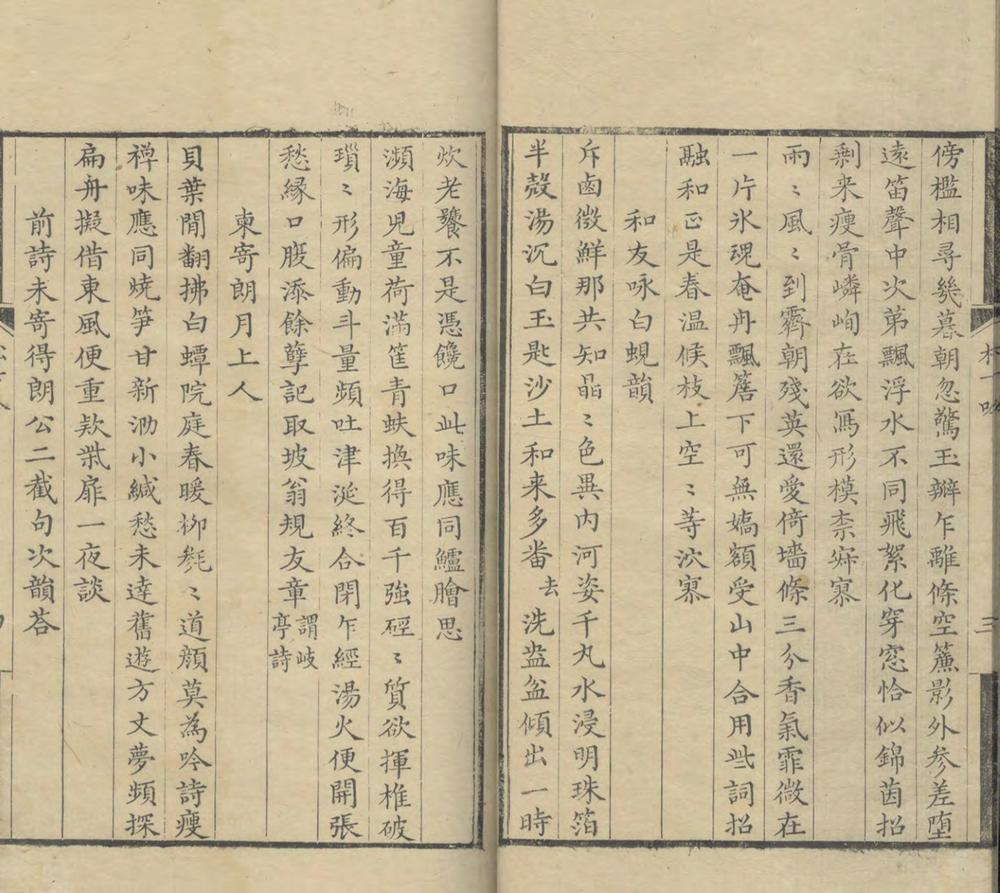 傍檻相尋幾慕朝忽驚玉辧乍離條空簾影外参差堕
遠笛聲中次第飄浮水不同飛絮化穿窓恰似錦茵招
剩来瘦骨嶙峋在欲寫形模柰寂寥
雨〻風〻到霽朝殘英還愛倚墻條三分香氣霏微在
一片氷魂奄冉飄簷下可無嬌額受山中合用些詞招
融和正是春温候枝上空〻等泬寥
和友咏白蜆韻
斥鹵微鮮那共知晶〻色異内河姿千丸水浸明珠箔
半殼湯沉白玉匙沙土和来多畨去洗盎盆傾出一時
炊老饕不是憑饞口此味應同鱸膾思
瀕海児童荷滿筐青蚨換得百千強硜〻質欲揮椎破
瑣〻形偏動斗量頻吐津涎終合閉乍經湯火便開張
愁緣口腹添餘孽記取坡翁規友章謂岐亭詩
柬寄朗月上人
貝葉閒翻拂白蟫院庭春暖柳毿〻道顔莫為吟詩瘦
禅味應同燒笋甘新泐小緘愁未達舊遊方丈夢頻探
扁舟擬借東風便重欵㲠扉一夜談
前詩未寄得朗公二截句次韻荅